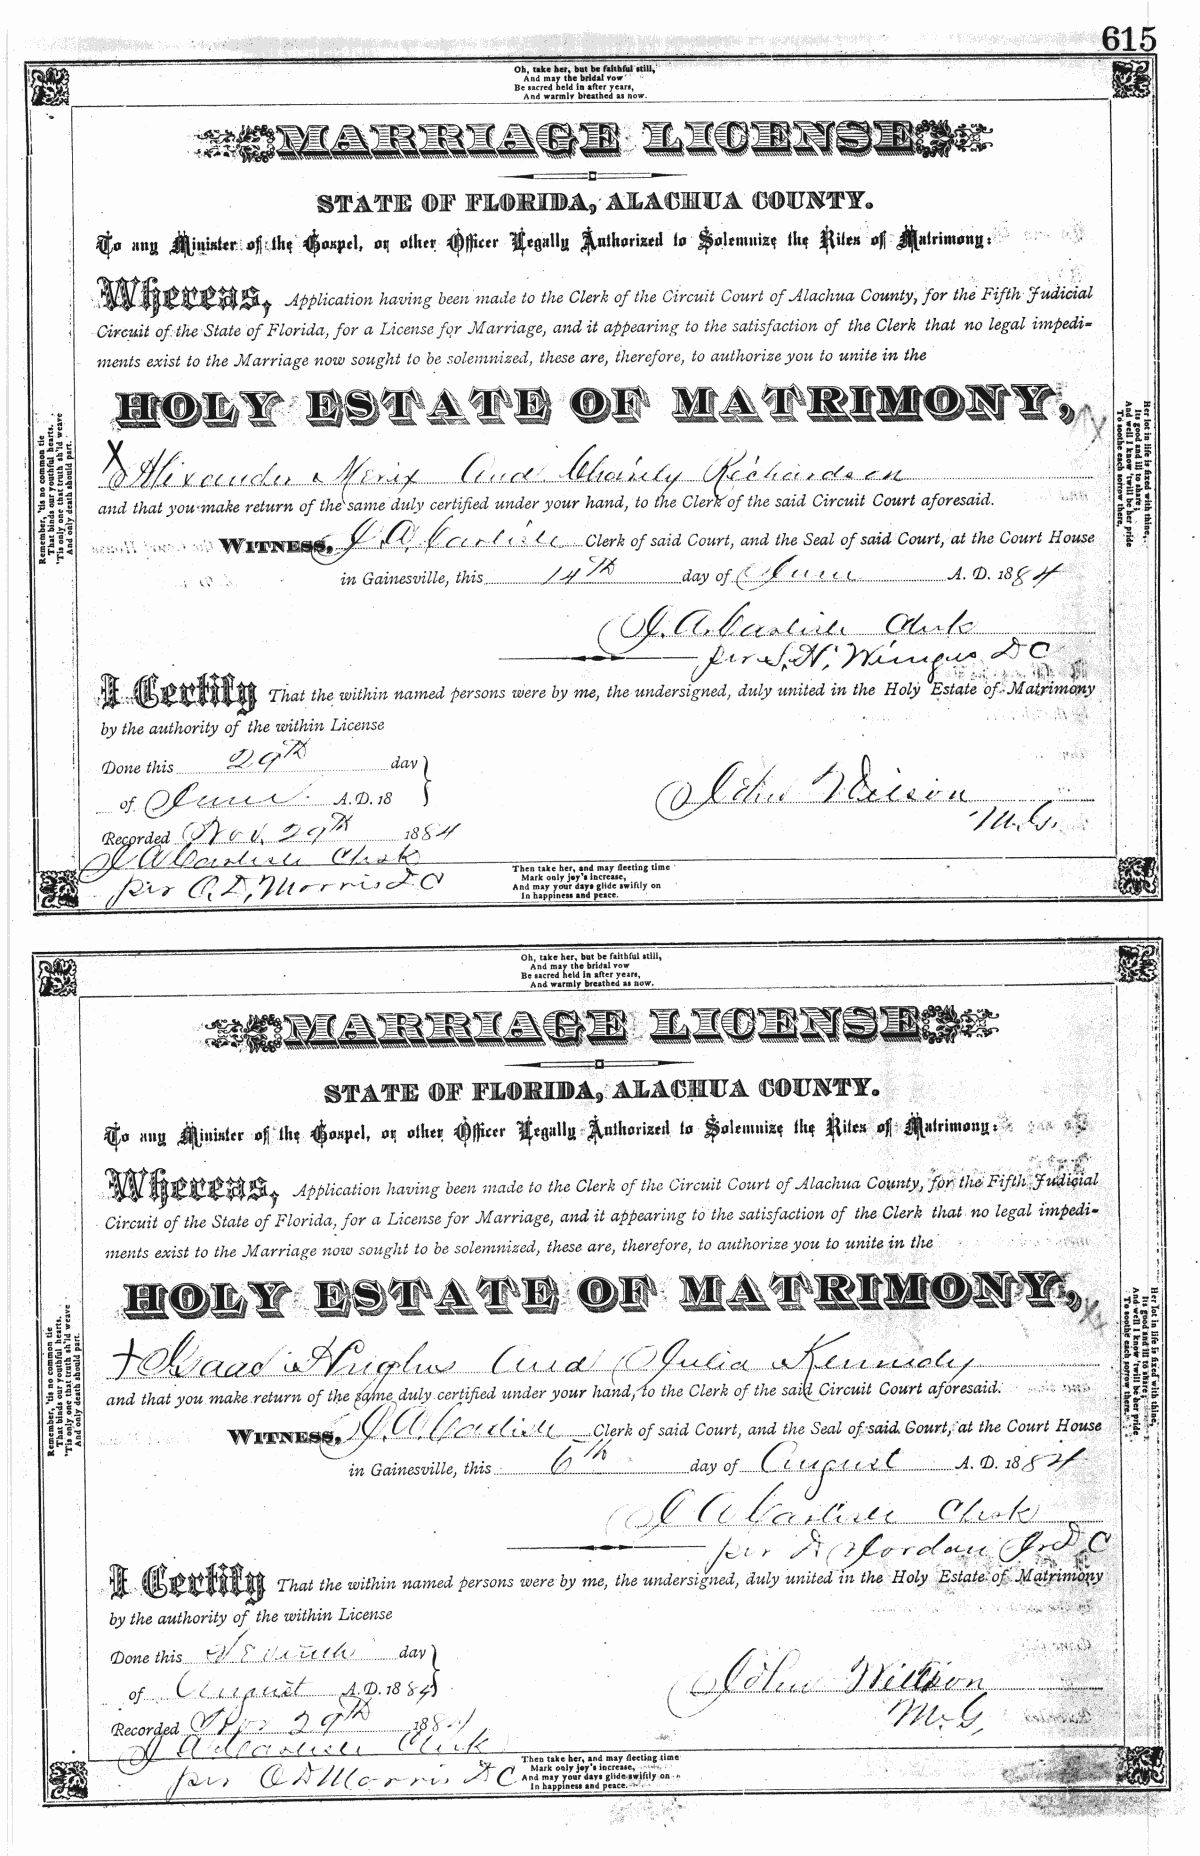 615
Oh, take her, but be faithful still,
And may the bridal vow
Be sacred held in after years,
And warmly breathed as now.
MARRIAGE LICENSE
STATE OF FLORIDA, ALACHUA COUNTY.
To any Minister of the Gospel, or other Officer Legally Authorized to Solemnize the Rites of Matrimony:
Whereas, Application having been made to the Clerk of the Circuit Court of Alachua County, for the Fifth Judicial
Circuit of the State of Florida, for a License for Marriage, and it appearing to the satisfaction of the Clerk that no legal impedi-
ments exist to the Marriage now sought to be solemnized, these are, therefore, to authorize you to unite in the
HOLY ESTATE OF MATRIMONY,
X Alixander Merix and Charity Richardson
and that you make return of the same duly certified under your hand, to the Clerk of the said Circuit Court aforesaid.
WITNESS, J. A. Carlisle Clerk of said Court, and the Seal of said Court, at the Court House
in Gainesville, this 14th day of June A. D. 1884
J. A. Carlisle Clerk
per S. H. Wienges D C
I Certify That the within named persons were by me, the undersigned, duly united in the Holy Estate of Matrimony
by the authority of the within License
Done this 29th day
of June A.D. 18
John Wilson
M.G.
Recorded Nov. 29th 1884
J A Carlisle Clerk
per O. D. Morris D C
Then take her, and may fleeting time
Mark only joy's increase,
And may your days glide swiftly on
In happiness and peace.
Remember, 'tis no common tie
That binds our youthful hearts,
'Tis only one that truth sh'ld weave
And only death should part.
Her lot in life is fixed with thine,
Its good and ill to share;
And well I know 'twill be her pride
To soothe each sorrow there,
Oh, take her, but be faithful still,
And may the bridal vow
Be sacred held in after years,
And warmly breathed as now.
MARRIAGE LICENSE
STATE OF FLORIDA, ALACHUA COUNTY.
To any Minister of the Gospel, or other Officer Legally Authorized to Solemnize the Rites of Matrimony:
Whereas, Application having been made to the Clerk of the Circuit Court of Alachua County, for the Fifth Judicial
Circuit of the State of Florida, for a License for Marriage, and it appearing to the satisfaction of the Clerk that no legal impedi-
ments exist to the Marriage now sought to be solemnized, these are, therefore, to authorize you to unite in the
HOLY ESTATE OF MATRIMONY,
Isaac Hughes and Julia Kennedy
and that you make return of the same duly certified under your hand, to the Clerk of the said Circuit Court aforesaid.
WITNESS, J. A. Carlisle Clerk of said Court, and the Seal of said Court, at the Court House
in Gainesville, this 6th day of August A. D. 1884
J A Carlisle Clerk
per D Jordan Jr D C
I Certify That the within named persons were by me, the undersigned, duly united in the Holy Estate of Matrimony
by the authority of the within License
Done this Seventh day
of August A.D. 1884
John Willson
M. G.
Recorded Nov 29th 1884
J A Carlisle Clerk
per O D Morris D C
Then take her, and may fleeting time
Mark only joy's increase,
And may your days glide swiftly on
In happiness and peace.
Remember, 'tis no common tie
That binds our youthful hearts.
'Tis only one that truth sh'ld weave
And only death should part.
Her lot in life is fixed with thine,
Its good and ill to share;
And well I know 'twill be her pride
To soothe each sorrow there.